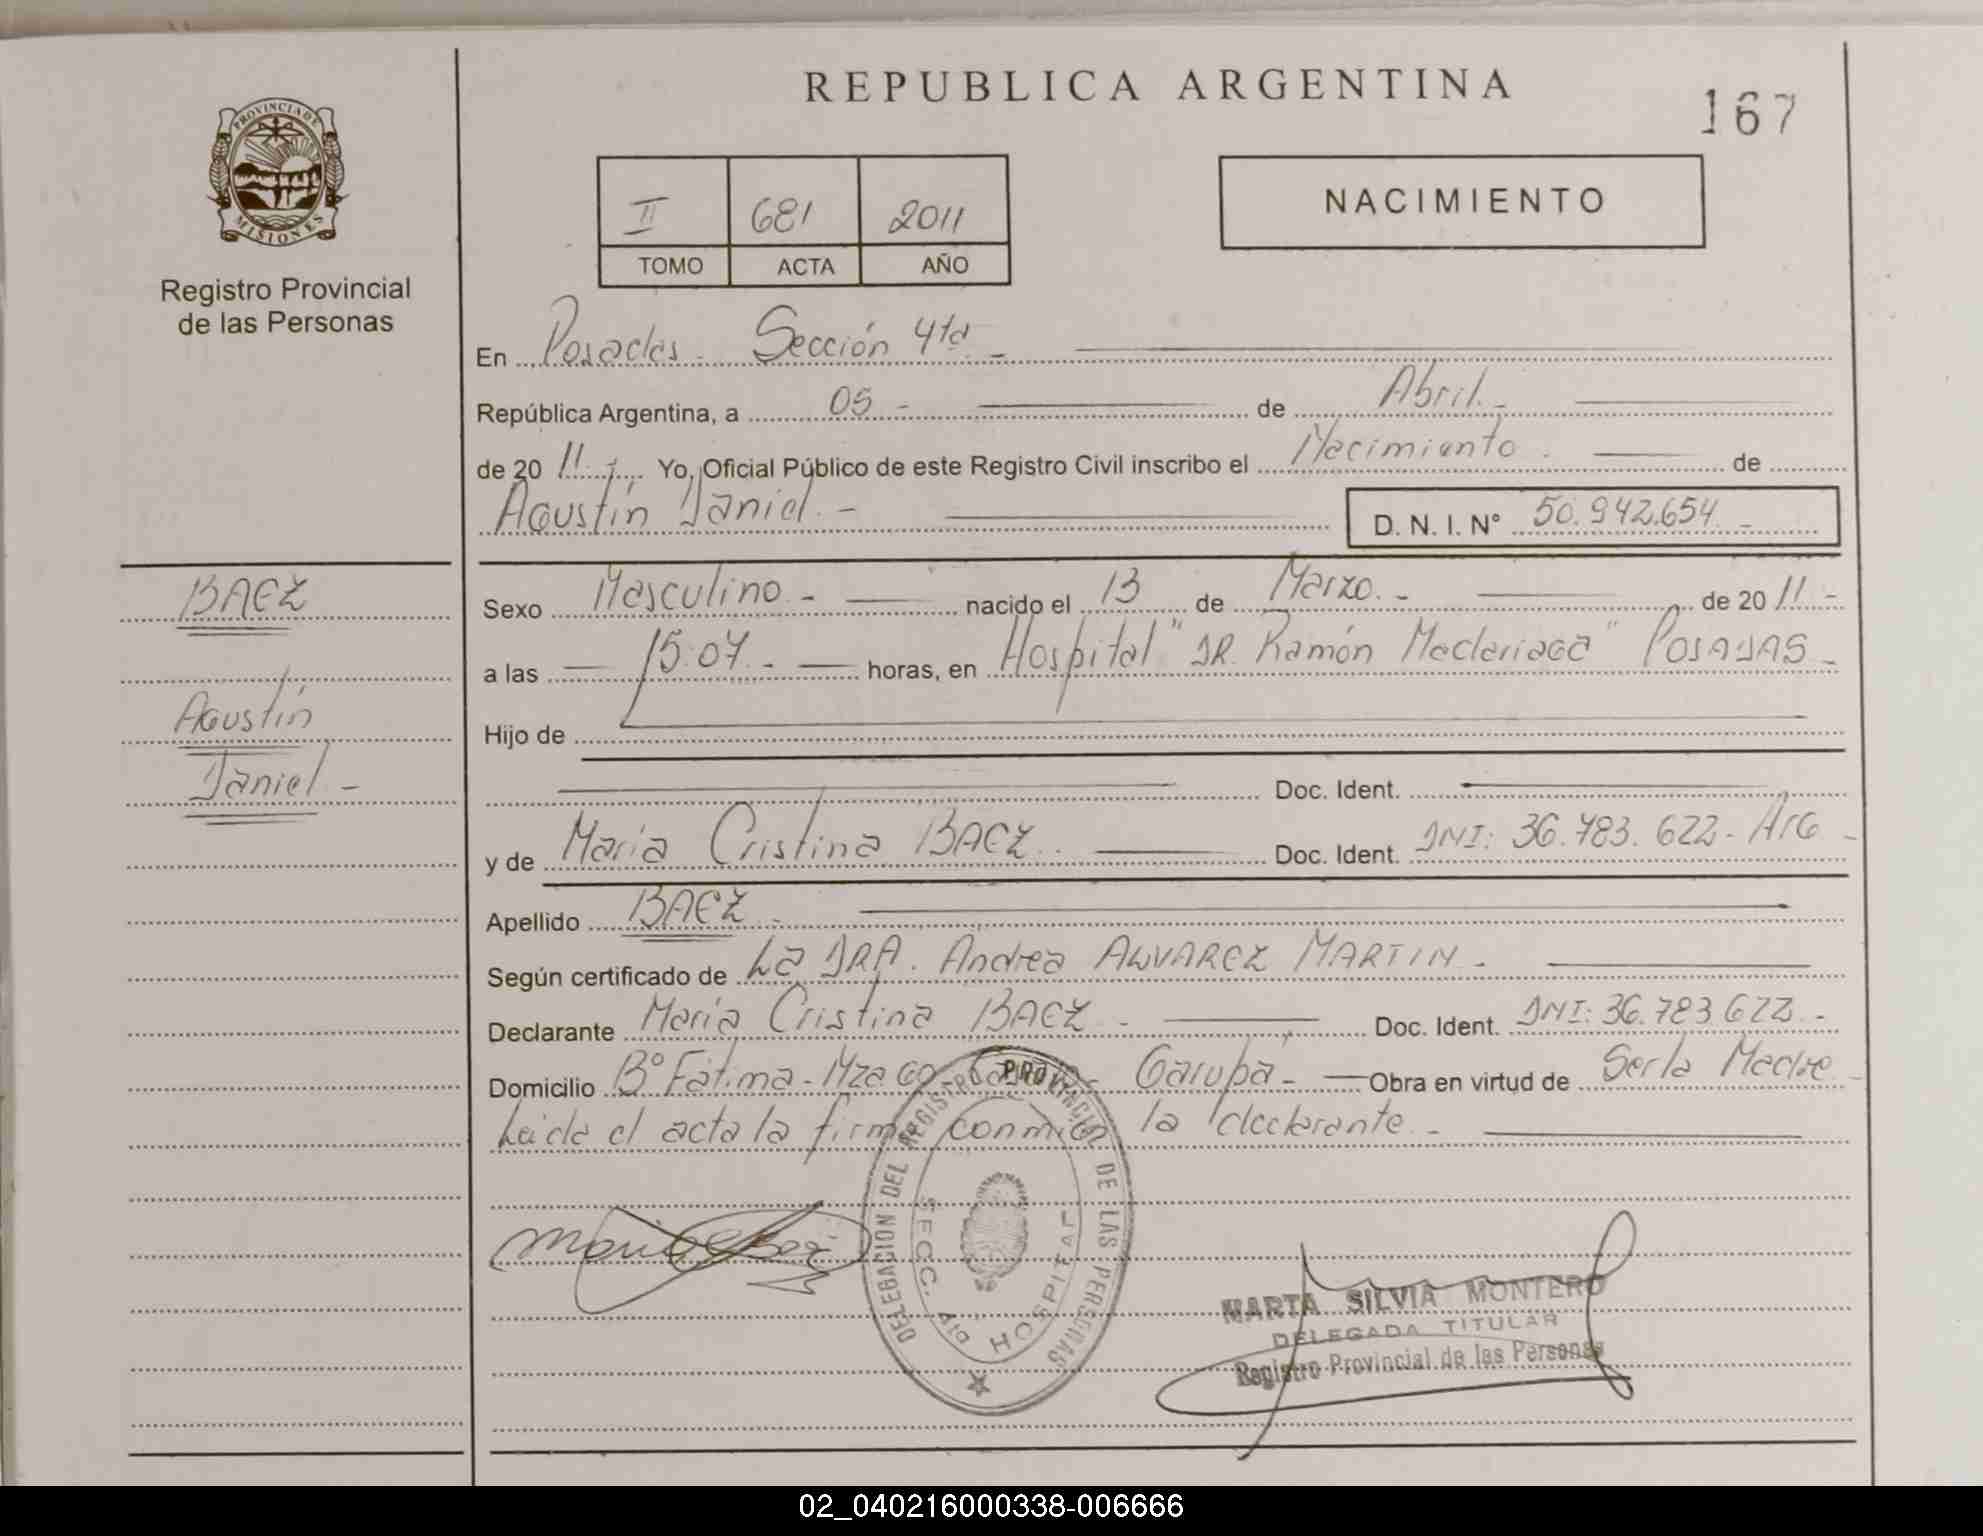 REPUBLICA ARGENTINA
167
PROVINCIA DE MISIONES
Registro Provincial
de las Personas
II 681 2011
TOMO ACTA AÑO
NACIMIENTO
En Posadas - Sección 4ta -
República Argentina, a 05 - de Abril. -
de 20 11. - Yo, Oficial Público de este Registro Civil inscribo el Nacimiento . de
Agustín Daniel. -
D. N. I. N° 50.942.654 -
BAEZ
Agustín
Daniel -
Sexo Masculino - nacido el 13 de Marzo. - de 20 11. -
a las 15:07. - horas, en Hospital "DR. Ramón Madariaga" POSADAS -
Hijo de
Doc. Ident.
y de María Cristina BAEZ. Doc. Ident. DNI: 36.783.622 - Arg -
Apellido BAEZ -
Según certificado de La DRA. Andrea ALVAREZ MARTIN -
Declarante María Cristina BAEZ - Doc. Ident. DNI: 36.783.622 -
Domicilio B° Fátima - Mza Garupá - Obra en virtud de Ser la Madre -
Leida el acta la firma conmigo la declarante. -
DELEGACION DEL REGISTRO PROVINCIAL DE LAS PERSONAS
SECC. 4ta HOSPITAL
MARTA SILVIA MONTERO
DELEGADA TITULAR
Registro Provincial de las Personas
02_040216000338-006666